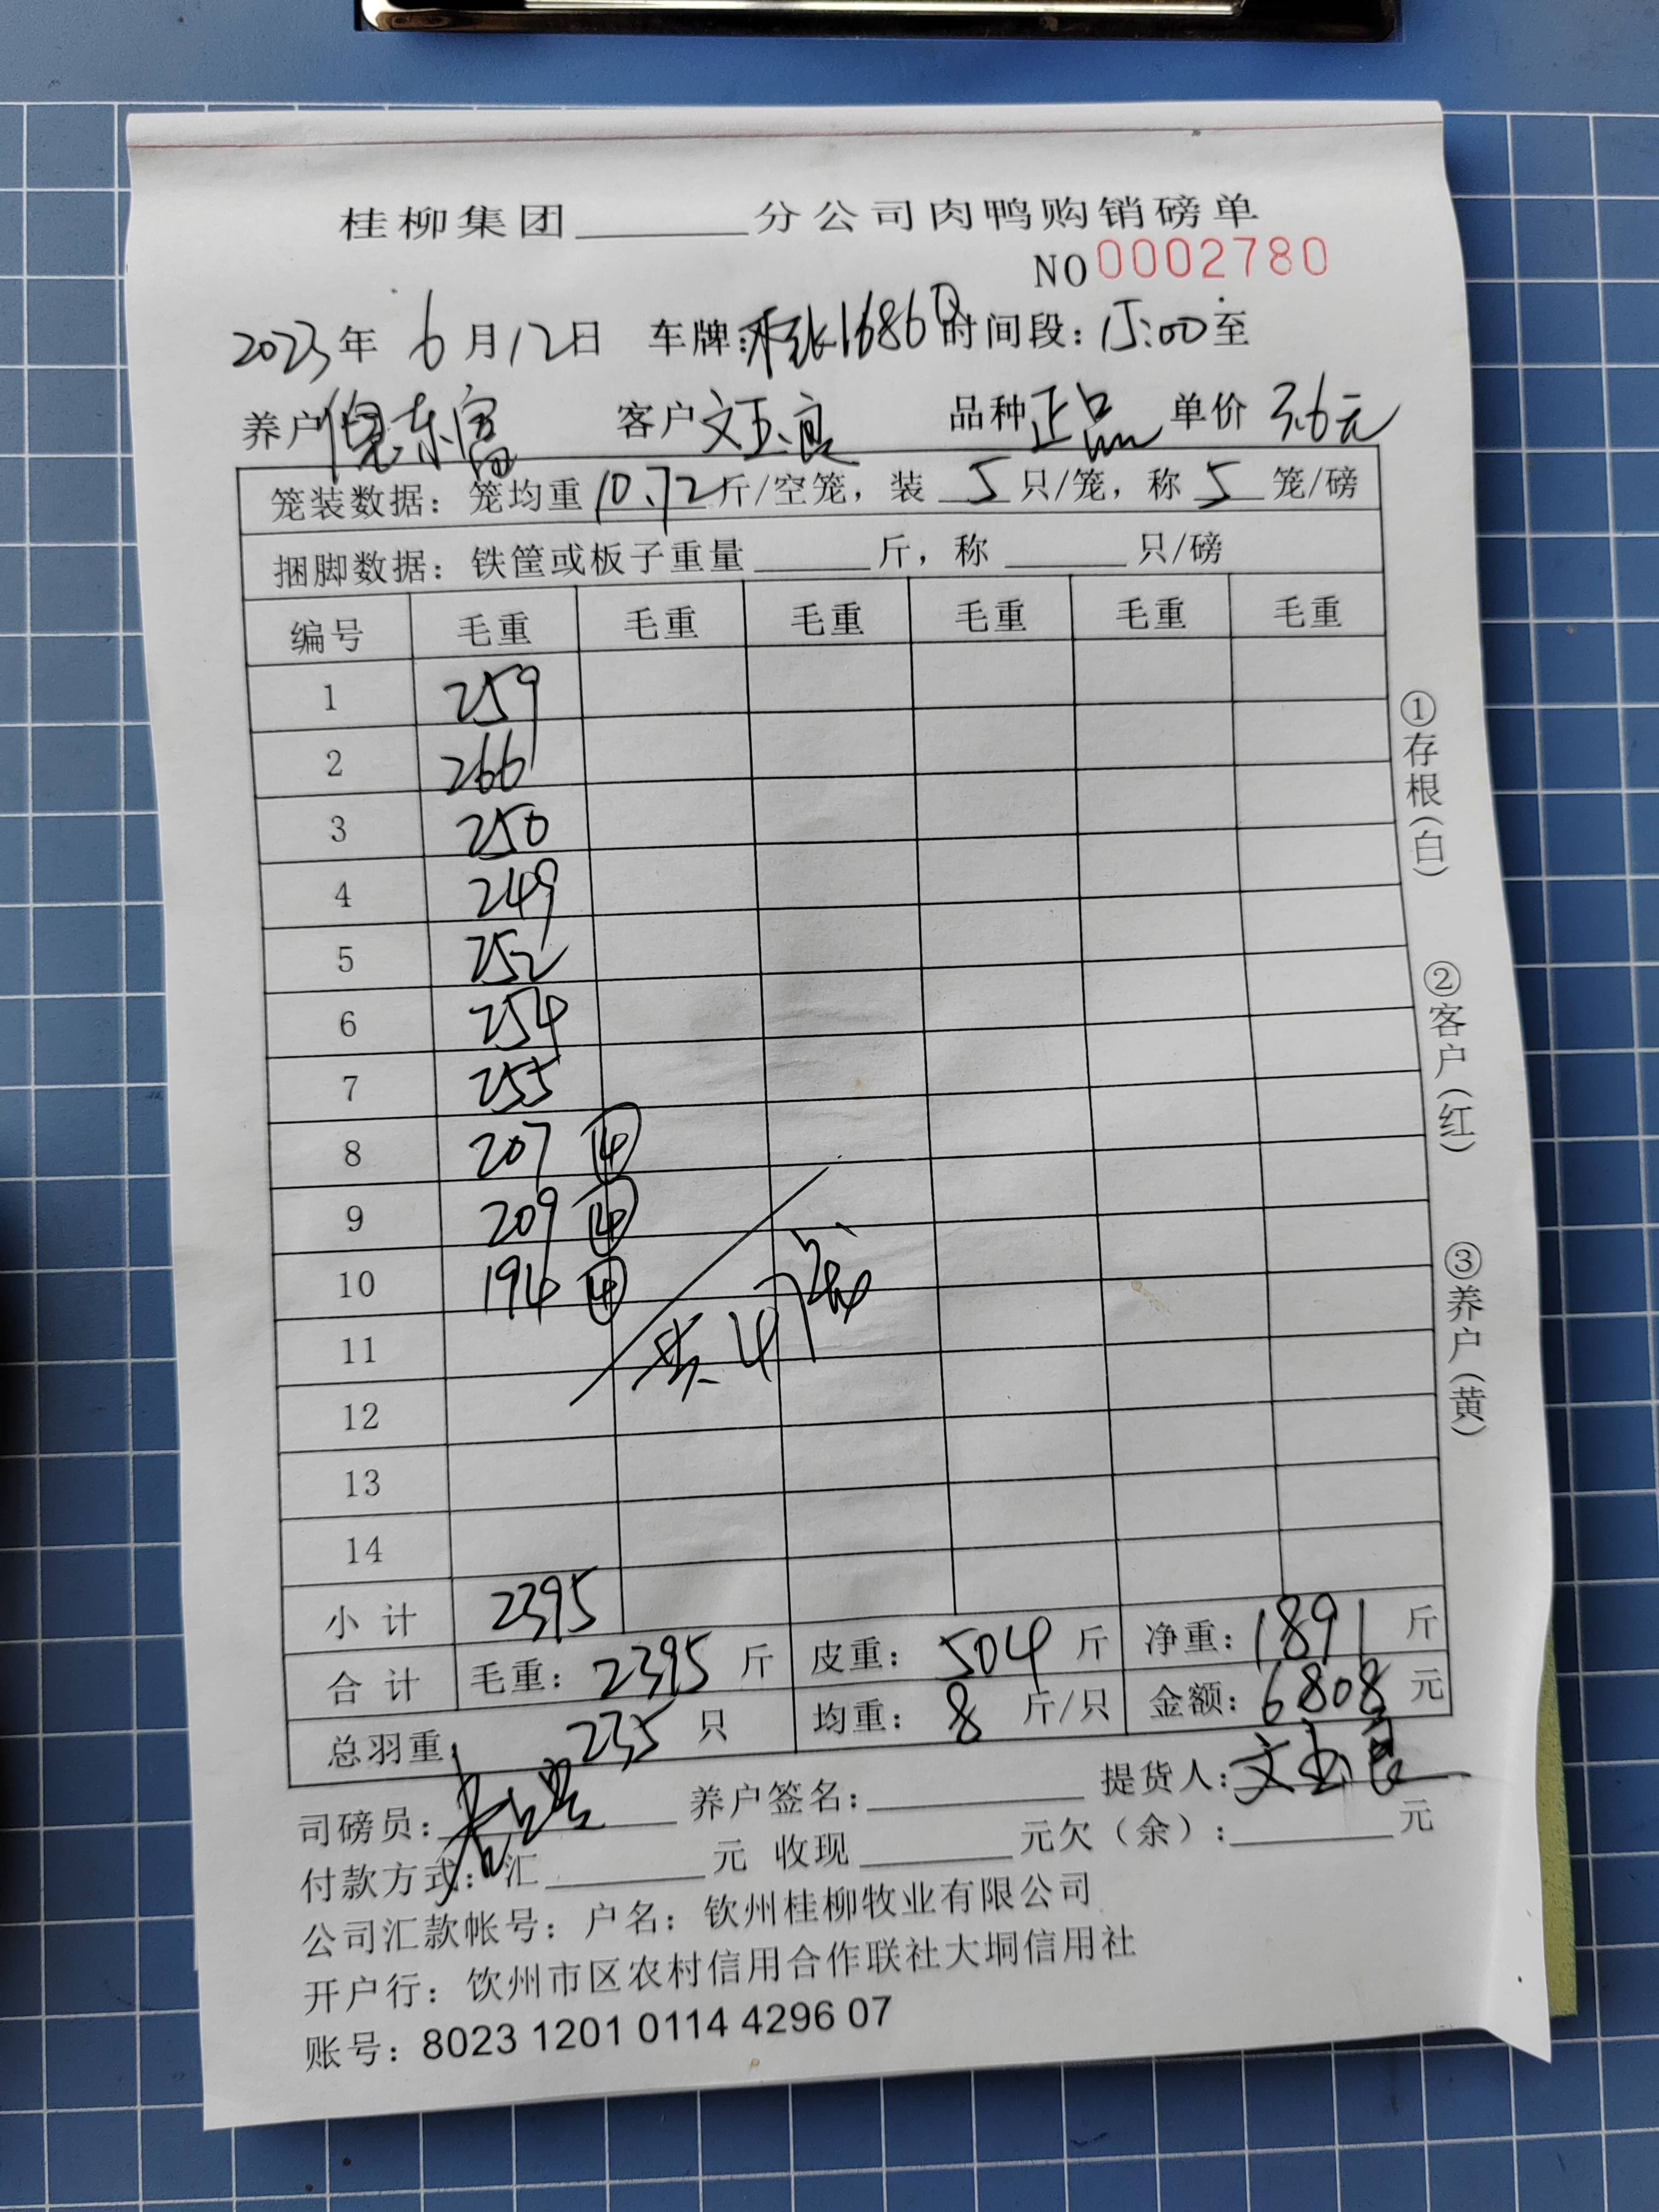 桂柳集团______分公司肉鸭购销磅单
NO 0002780
2023年 6月12日 车牌: 1686Q 时间段: 15:00至
养户 倪东富 客户 文玉良 品种 正品 单价 3.6元
笼装数据: 笼均重 10.72斤/空笼, 装 5 只/笼, 称 5 笼/磅
捆脚数据: 铁筐或板子重量______斤, 称______只/磅
编号 毛重 毛重 毛重 毛重 毛重 毛重
1 259
2 266
3 250
4 249
5 252
6 254
7 255
8 207 ④
9 209 ④
10 194 ④
共47笼
11
12
13
14
小 计 2395
合 计 毛重: 2395 斤 皮重: 504 斤 净重: 1891 斤
总羽重 235 只 均重: 8 斤/只 金额: 6808 元
司磅员: 养户签名:______ 提货人: 文玉良
付款方式: 汇______元 收现______元欠(余):______元
公司汇款帐号: 户名: 钦州桂柳牧业有限公司
开户行: 饮州市区农村信用合作联社大垌信用社
账号: 8023 1201 0114 4296 07
①存根(白)
②客户(红)
③养户(黄)